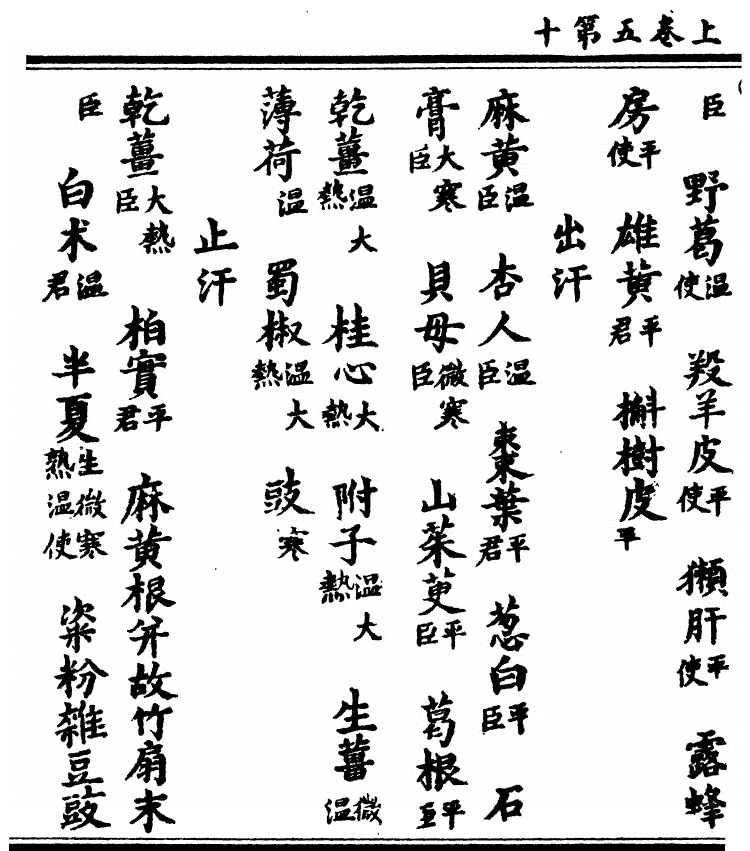 上卷五第十
臣 野葛温使 羖羊皮平使 獺肝平使 露蜂
房平使 雄黄平君 槲樹皮平
出汗
麻黄温臣 杏人温臣 棗葉平君 葱白平臣 石
膏大寒臣 貝母微寒臣 山茱萸平臣 葛根平臣
乾薑温大熱 桂心大熱 附子温大熱 生薑微温
薄荷温 蜀椒温大熱 豉寒
止汗
乾薑大熱臣 柏實平君 麻黄根并故竹扇末
臣 白术温君 半夏生微寒熱温使 粢粉雜豆豉